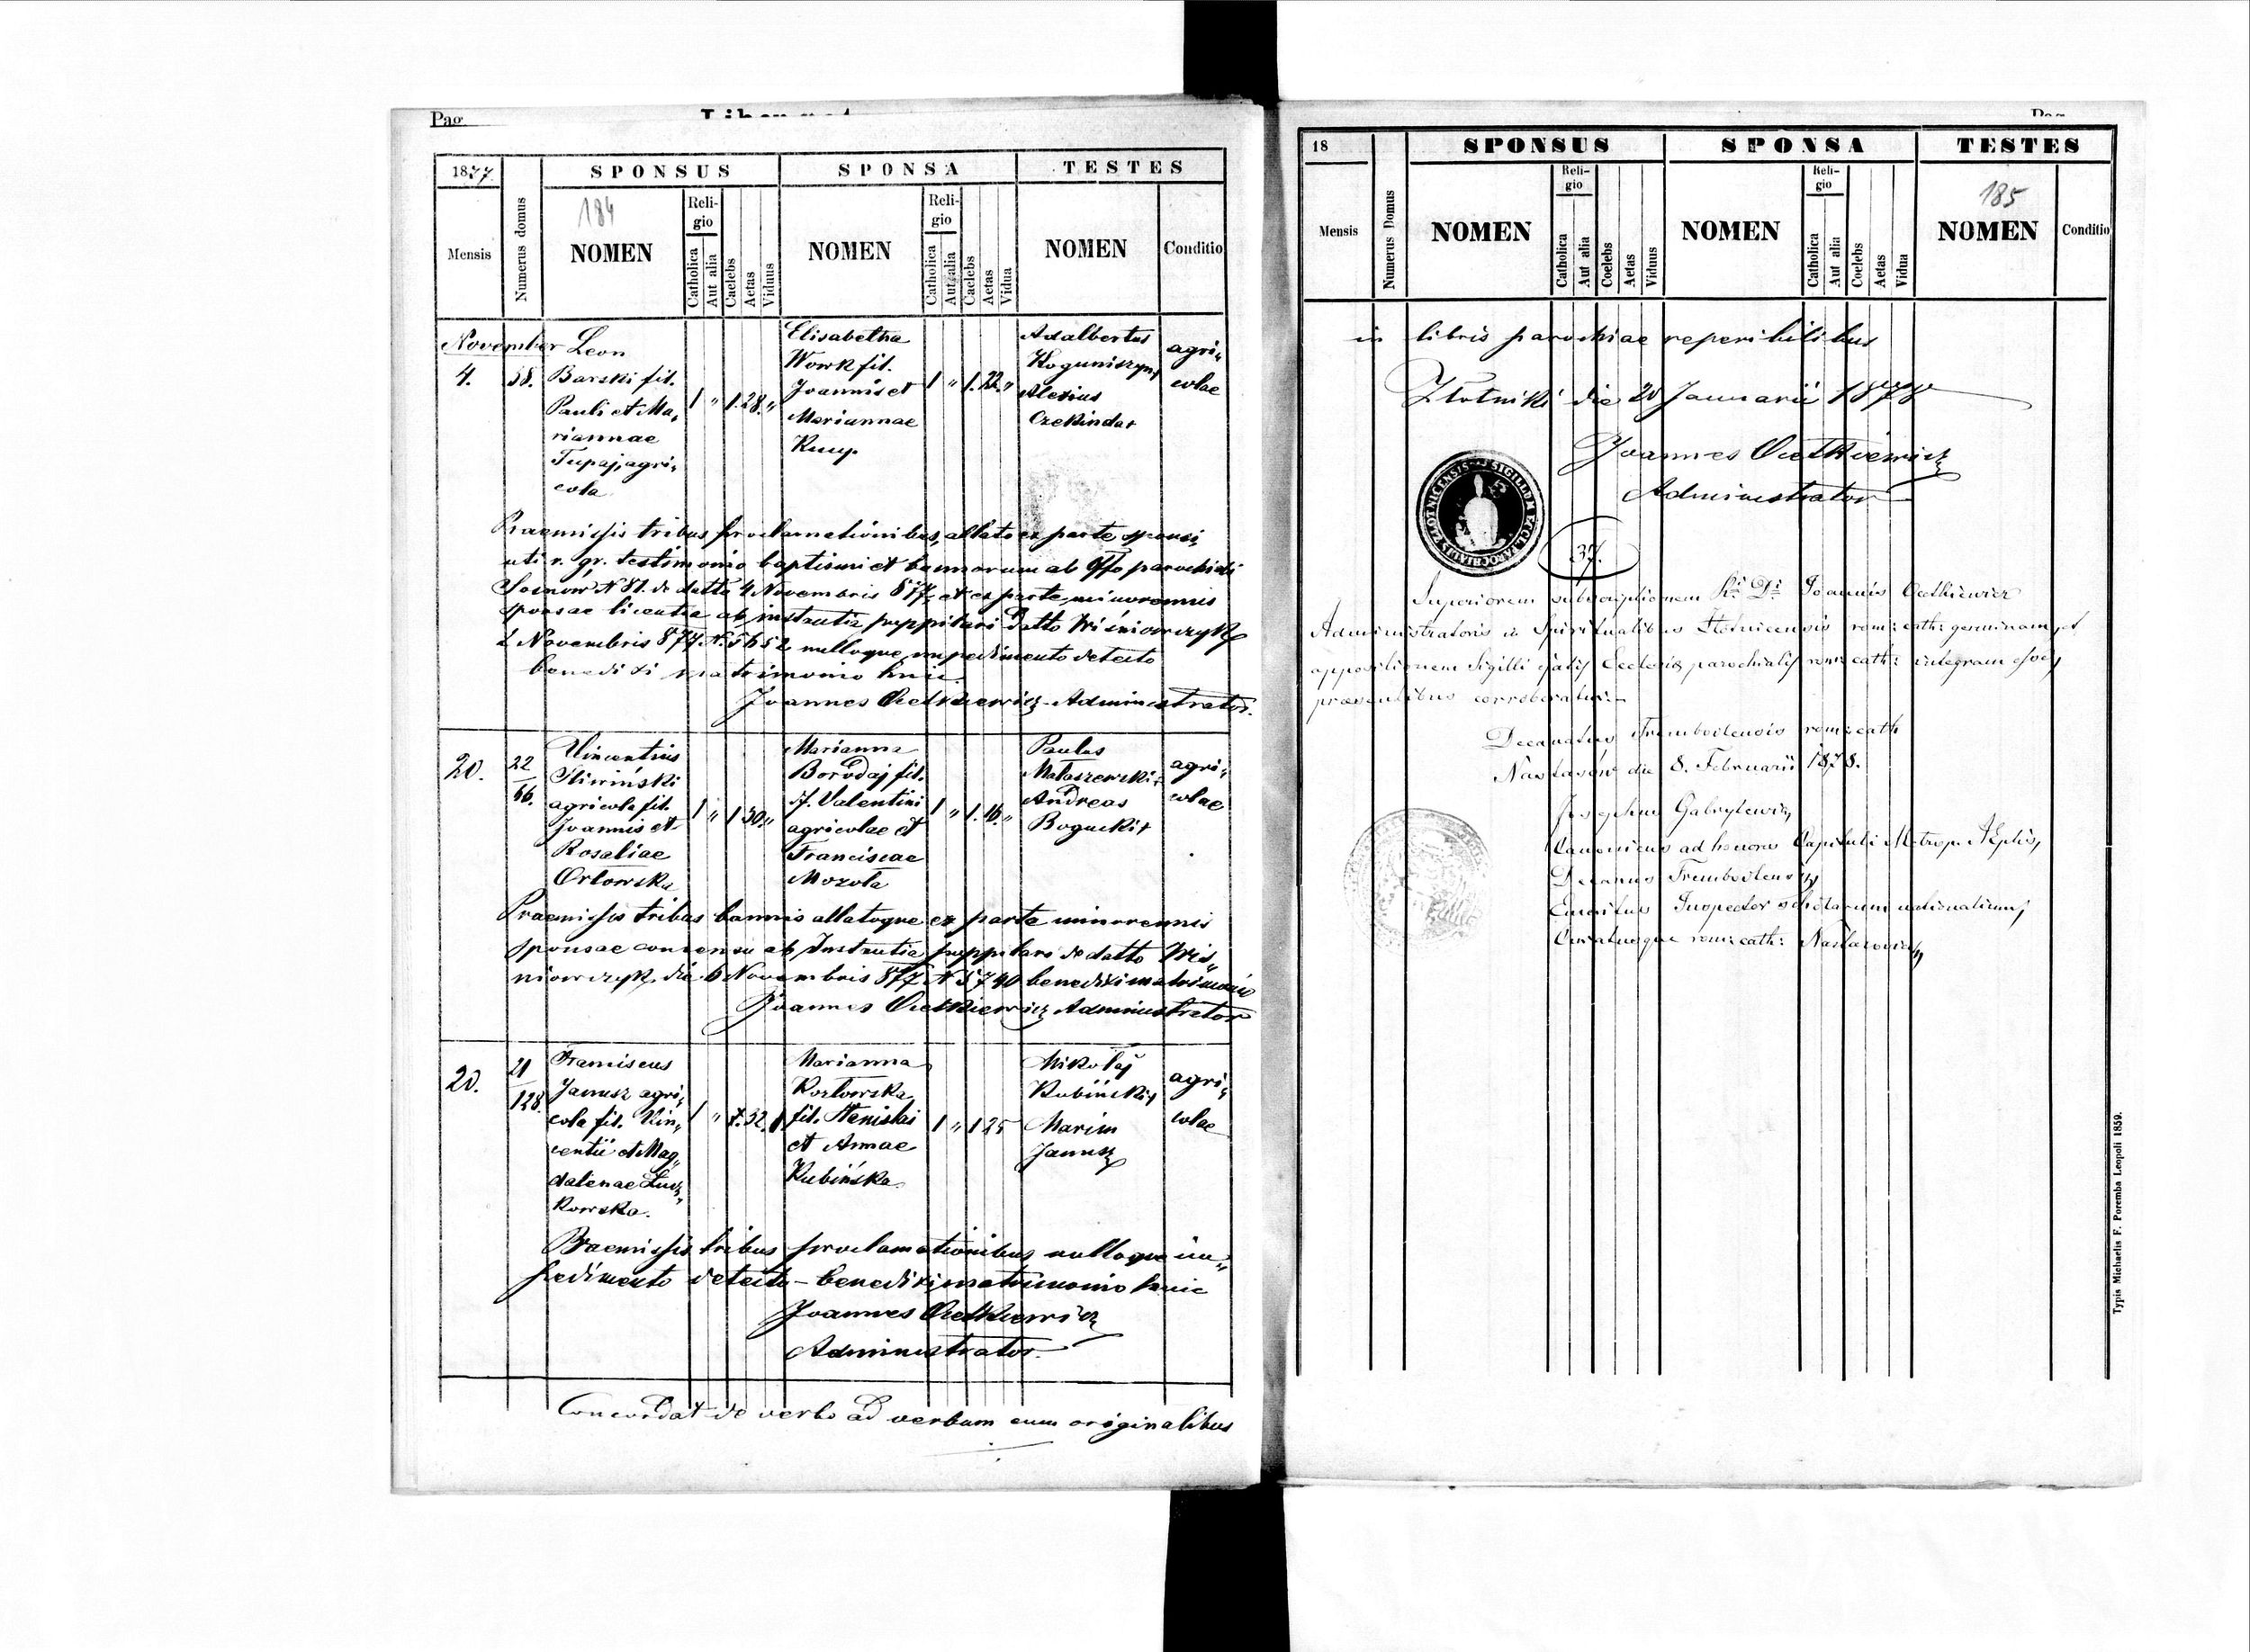 Pag.
1877.
SPONSUS
SPONSA
TESTES
Mensis
Numerus domus
184
NOMEN
Reli-
gio
Catholica
Aut alia
Caelebs
Aetas
Viduus
NOMEN
Reli-
gio
Catholica
Aut alia
Caelebs
Aetas
Vidua
NOMEN
Conditio
November
4.
58.
Leon
Barski fil.
Pauli et Ma,
riannae
Tupaj, agri,
cola
1 " 1. 28. "
Elisabetha
Work fil.
Joannis et
Mariannae
1 " 1. 22. "
Adalbertus
Koguniszyn,
Alexius
Czekinda+
agri,
colae
Praemissis tribus proclamationibus, allato ex parte sponsi,
uti r. gr. testimonio baptismi et bannorum ab Offo parochiali
Sosnow N 81. de datto 4 Novembris 877, et ex parte minorennis
sponsae licentia ab instantia puppilari datto Wiśniowczyk
2 Novembris 877. N. 5652 nulloque impedimento detecto
benedixi matrimonio huic.
Joannes Administrator.
20.
22
66.
Vincentius
Śliwiński
agricola fil.
Joannis et
Rosaliae
Orłowska
1 " 1 30. "
Marianna
Borodaj fil.
Valentini
agricolae et
Franciscae
Mozoła
1 " 1. 16. "
Paulus
Małaszewski+
Andreas
Bogucki+
agri,
colae
Praemissis tribus bannis allatoque ex parte minorennis
sponsae consensu ab Instantia puppilari de datto Wiś,
niowczyk, die 6 Novembris 877 N 5740 benedixi matrimonio
Joannes Administrator
20.
21
128.
Franciscus
Janusz agri,
cola fil. Vin,
centii et Mag,
dalenae
kowska.
Marianna
Kozłowska
fil. Stanislai
et Annae
Kubińska.
1 " 1 25
Mikołaj
Kubiński+
Janusz
agri,
colae
Praemissis tribus proclamationibus nulloque im,,
pedimento detecto – benedixi matrimonio huic
Joannes
Administrator.
Concordat de verbo ad verbum cum originalibus
18
SPONSUS
SPONSA
TESTES
Mensis
Numerus Domus
NOMEN
Reli-
gio
Catholica
Aut alia
Coelebs
Aetas
Viduus
NOMEN
Reli-
gio
Catholica
Aut alia
Coelebs
Aetas
Vidua
185
NOMEN
Conditio
in libris parochiae reperibilibus
Złotniki die 20 Januarii 1878
Joannes
Administrator
37.
Superiorem subscriptionem Joannis
Administratoris in Spiritualibus rom: cath: germinam, et
appositionem Sigilli Ecclesiae parochialis rom: cath: integram esse,
praesentibus corroboratur.
Decanatus Trembovlensis rom: cath
Nastasów die 8. Februarii 1878.
Josephus Gabrylewicz
Canonicus ad honores Capituli Metrop.
Decanus Trembovlensis,
Emeritus Inspector scholarum nationalium,
Curatusque rom: cath:
Typis Michaelis F. Poremba Leopoli 1859.